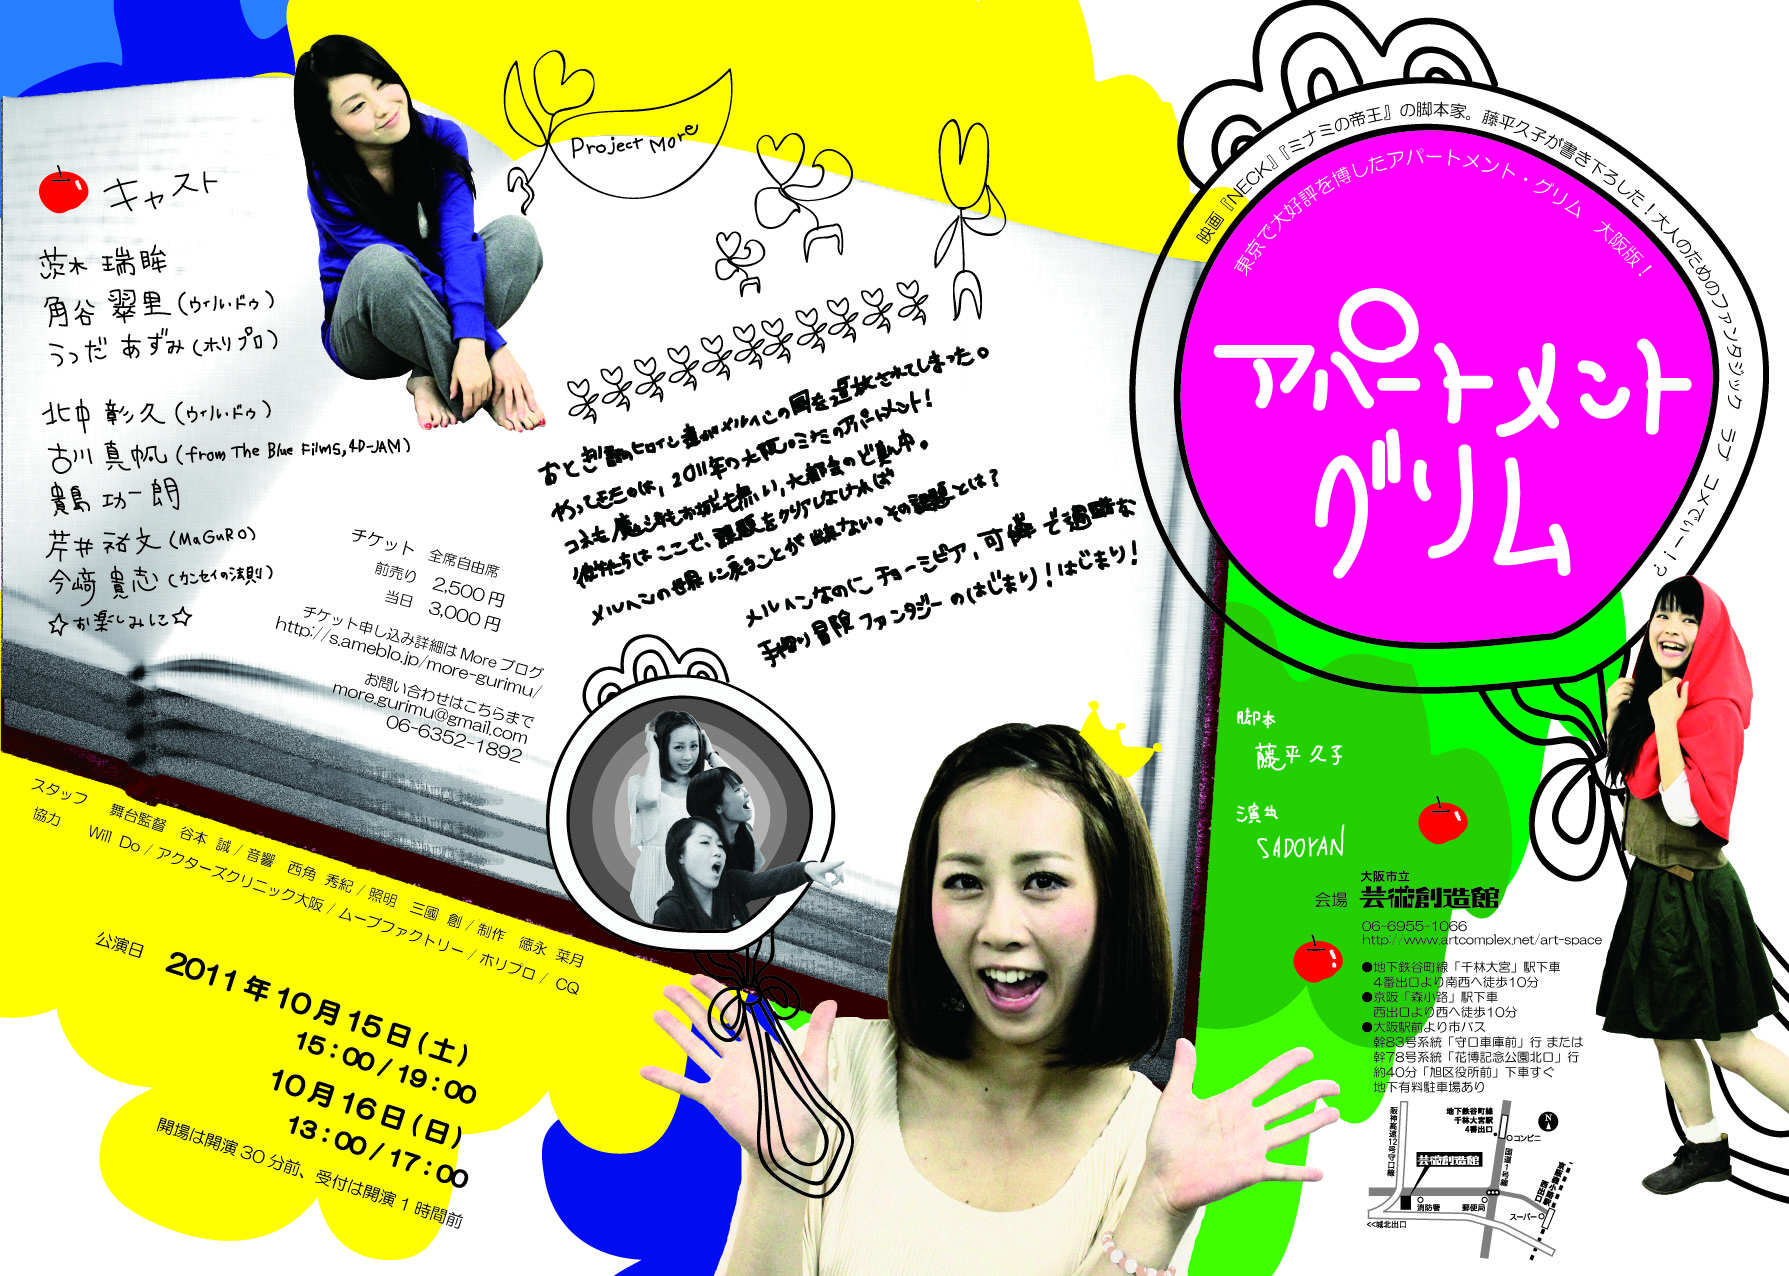 キャスト
茨木 瑞眸
角谷 翠里(ウィル・ドゥ)
うつだ あずみ(ホリプロ)
北中 彰久(ウィル・ドゥ)
古川 真帆(from The Blue Films, 4D-JAM)
貴島 功一朗
芹井 祐文(MaGuRO)
今﨑 貴志(カンセイの法則)
☆お楽しみに☆
チケット 全席自由席
前売り 2,500円
当日 3,000円
チケット申し込み詳細はMoreブログ
http://s.ameblo.jp/more-gurimu/
お問い合わせはこちらまで
more.gurimu@gmail.com
06-6352-1892
Project More
おとぎ話のヒロイン達がメルヘンの国を追放されてしまった。
やってきたのは、2011年の大阪ミナミのアパートメント!
コネも魔法もお城も無い、大都会のど真ん中。
彼女たちはここで、課題をクリアしなければ
メルヘンの世界に戻ることが出来ない。その課題とは?
メルヘンなのにチョーシビア,可憐で過酷な
手探り冒険ファンタジーのはじまり!はじまり!
映画『NECK』『ミナミの帝王』の脚本家。藤平久子が書き下ろした!大人のためのファンタジック ラブ コメでぃー!?
東京で大好評を博したアパートメント・グリム 大阪版!
アパートメント
グリム
脚本
藤平 久子
演出
SADOYAN
スタッフ 舞台監督 谷本 誠/音響 西角 秀紀/照明 三國 創/制作 徳永 菜月
協力 Will Do/アクターズクリニック大阪/ムーブファクトリー/ホリプロ/CQ
公演日 2011年10月15日(土)
15:00/19:00
10月16日(日)
13:00/17:00
開場は開演30分前、受付は開演1時間前
大阪市立
会場 芸術創造館
06-6955-1066
http://www.artcomplex.net/art-space
●地下鉄谷町線「千林大宮」駅下車
4番出口より南西へ徒歩10分
●京阪「森小路」駅下車
西出口より西へ徒歩10分
●大阪駅前より市バス
幹83号系統「守口車庫前」行 または
幹78号系統「花博記念公園北口」行
約40分「旭区役所前」下車すぐ
地下有料駐車場あり
阪神高速12号守口線
地下鉄谷町線
千林大宮駅
4番出口
コンビニ
N
国道1号線
芸術創造館
京阪森小路駅
西出口
消防署
郵便局
スーパー
<<城北出口